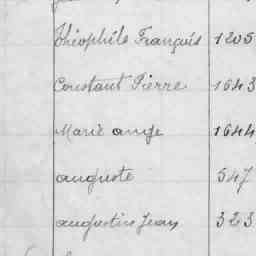 Théophile François 1205
Constant Pierre 1643
Marie ange 1644
auguste 547
augustin Jean 323